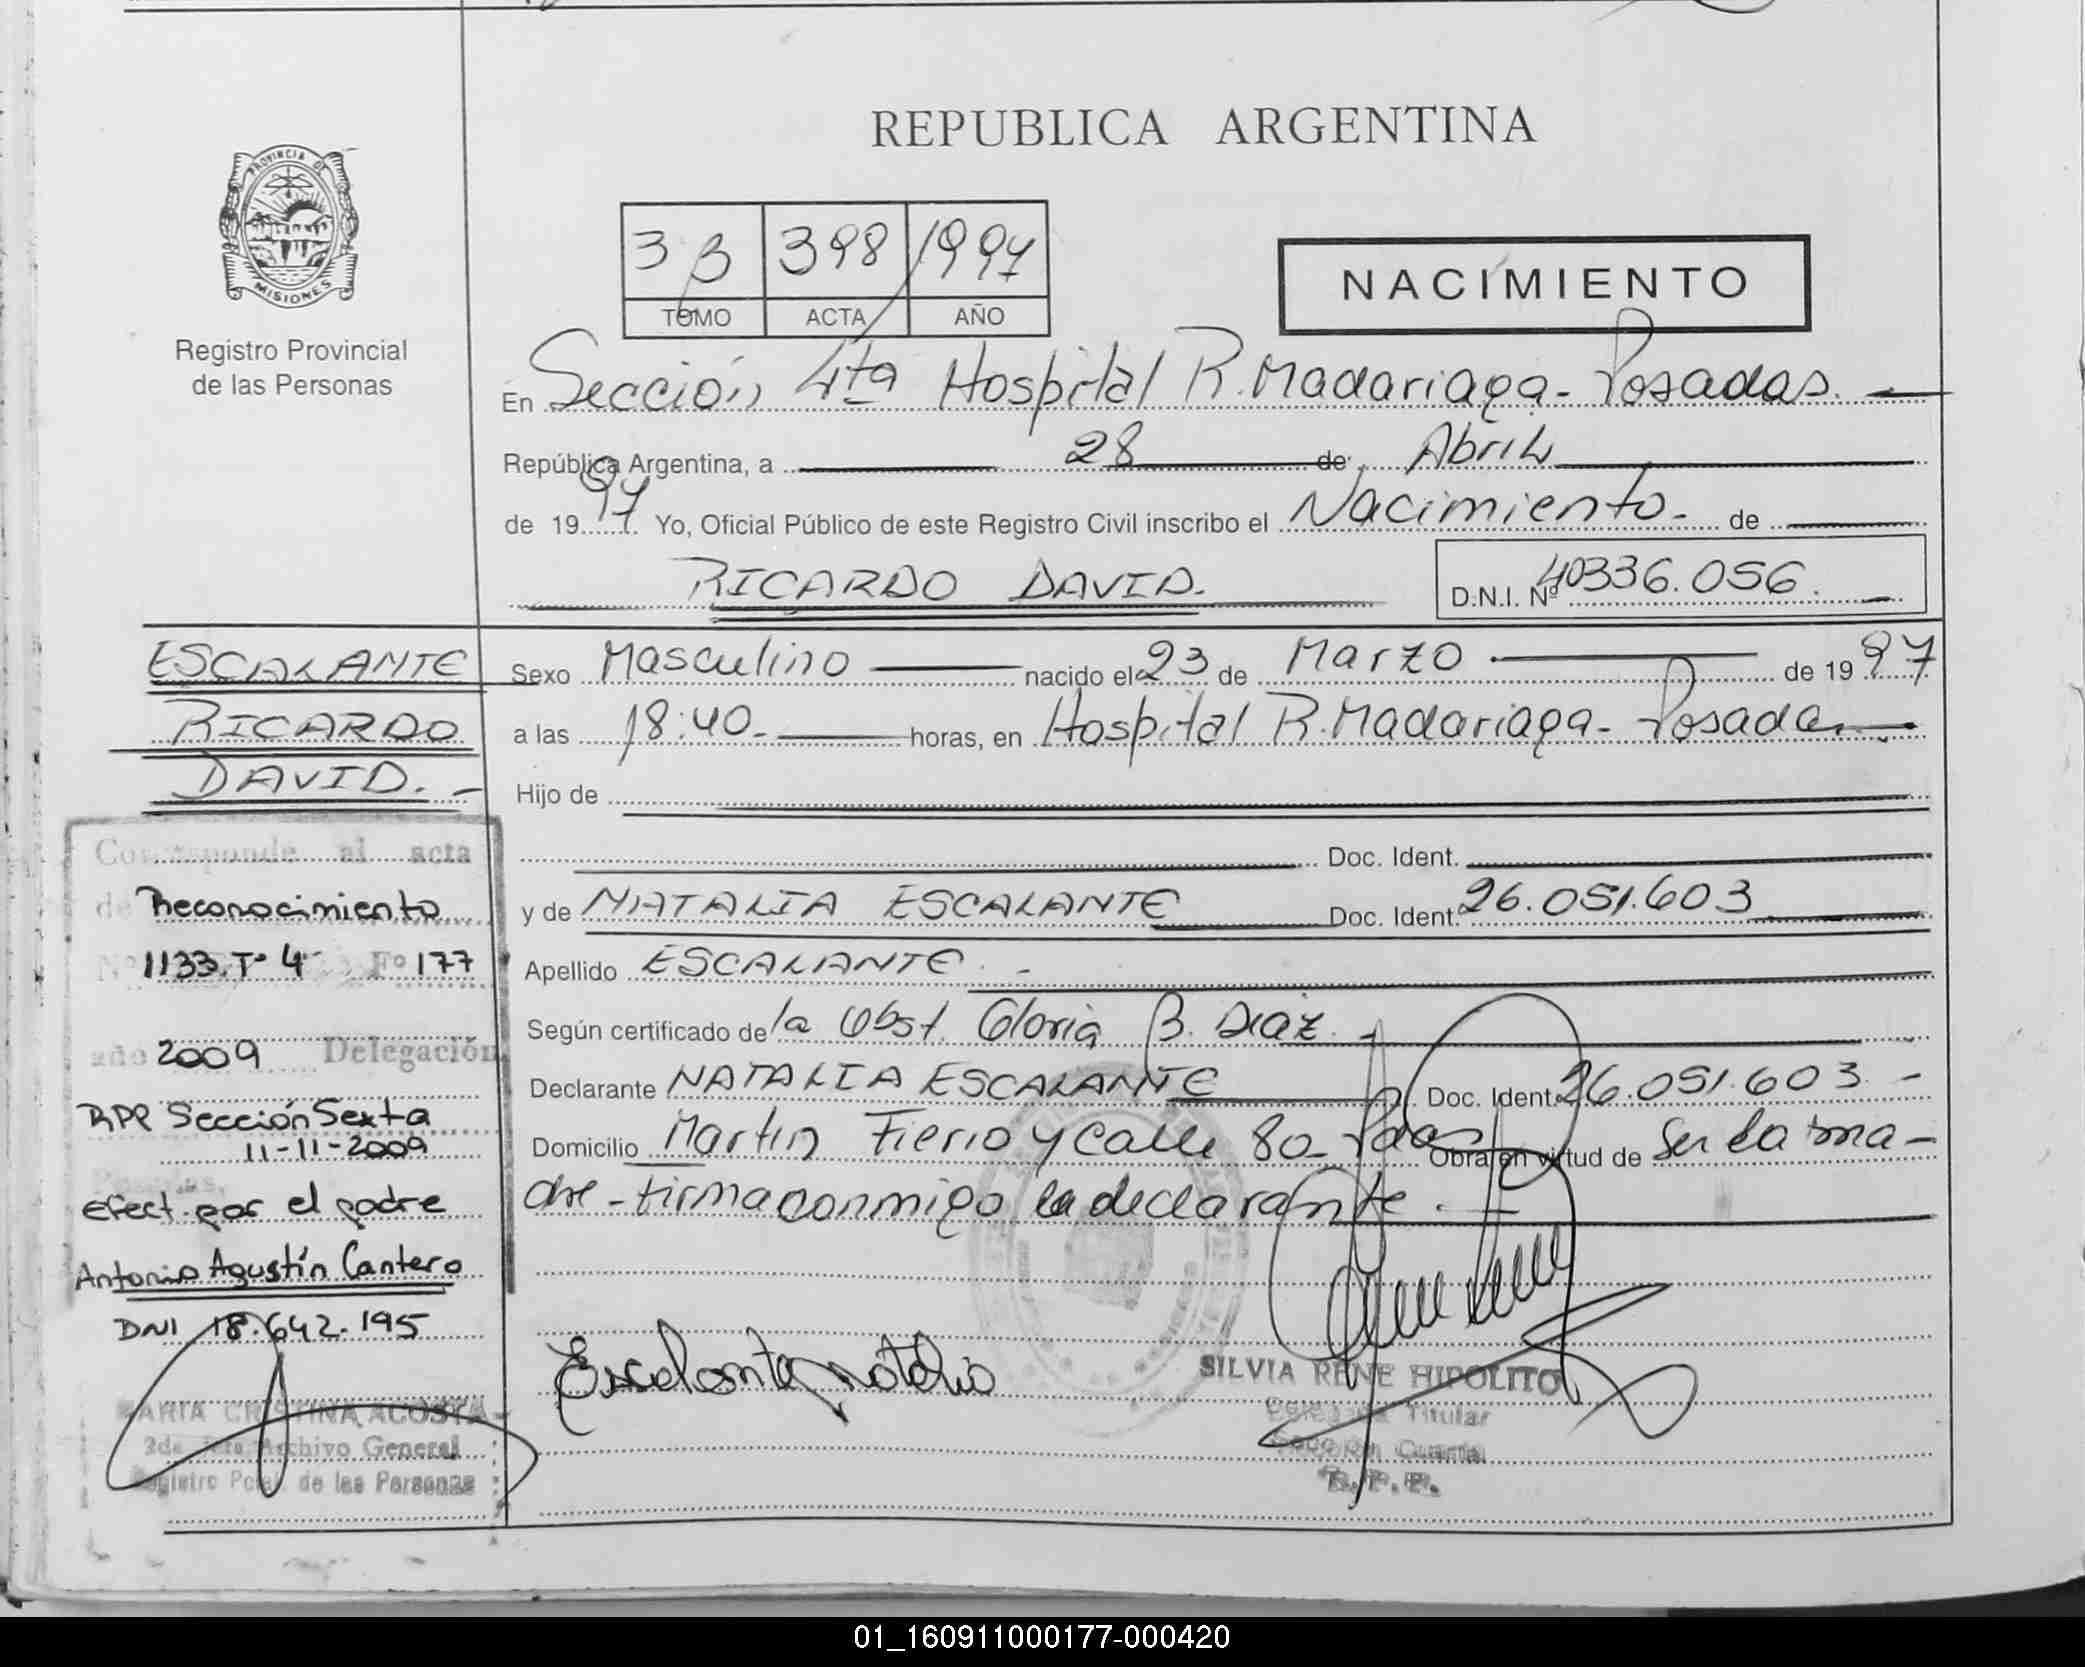 REPUBLICA ARGENTINA
PROVINCIA DE
MISIONES
Registro Provincial
de las Personas
3 B 398 1997
TOMO ACTA AÑO
NACIMIENTO
En Sección 4ta Hospital R. Madariaga - Posadas.
República Argentina, a 28 de Abril
de 1997. Yo, Oficial Público de este Registro Civil inscribo el Nacimiento - de
RICARDO DAVID.
D.N.I. Nº 40336.056.
ESCALANTE
RICARDO
DAVID. -
Sexo Masculino nacido el 23 de Marzo de 1997
a las 18:40 - horas, en Hospital R. Madariaga - Posadas
Hijo de
Doc. Ident.
y de NATALIA ESCALANTE Doc. Ident. 26.051.603
Apellido ESCALANTE. -
Según certificado de la Obst. Gloria B. Diaz. -
Declarante NATALIA ESCALANTE Doc. Ident. 26.051.603 -
Domicilio Martin Fierro y Calle 80 - Pdas Obra en virtud de Ser la ma -
dre - firma conmigo la declarante. -
Corresponde al acta
de Reconocimiento
Nº 1133. Tº 4 Fº 177
año 2009 Delegación
RPP Sección Sexta
11-11-2009
Posadas,
Efect. por el padre
Antonio Agustín Cantero
DNI 18.642.195
MARIA CRISTINA ACOSTA
2da Jefa Archivo General
Registro Pcial. de las Personas
Escalante Natalia
SILVIA RENE HIPOLITO
Delegada Titular
Sección Cuarta
R.P.P.
01_160911000177-000420